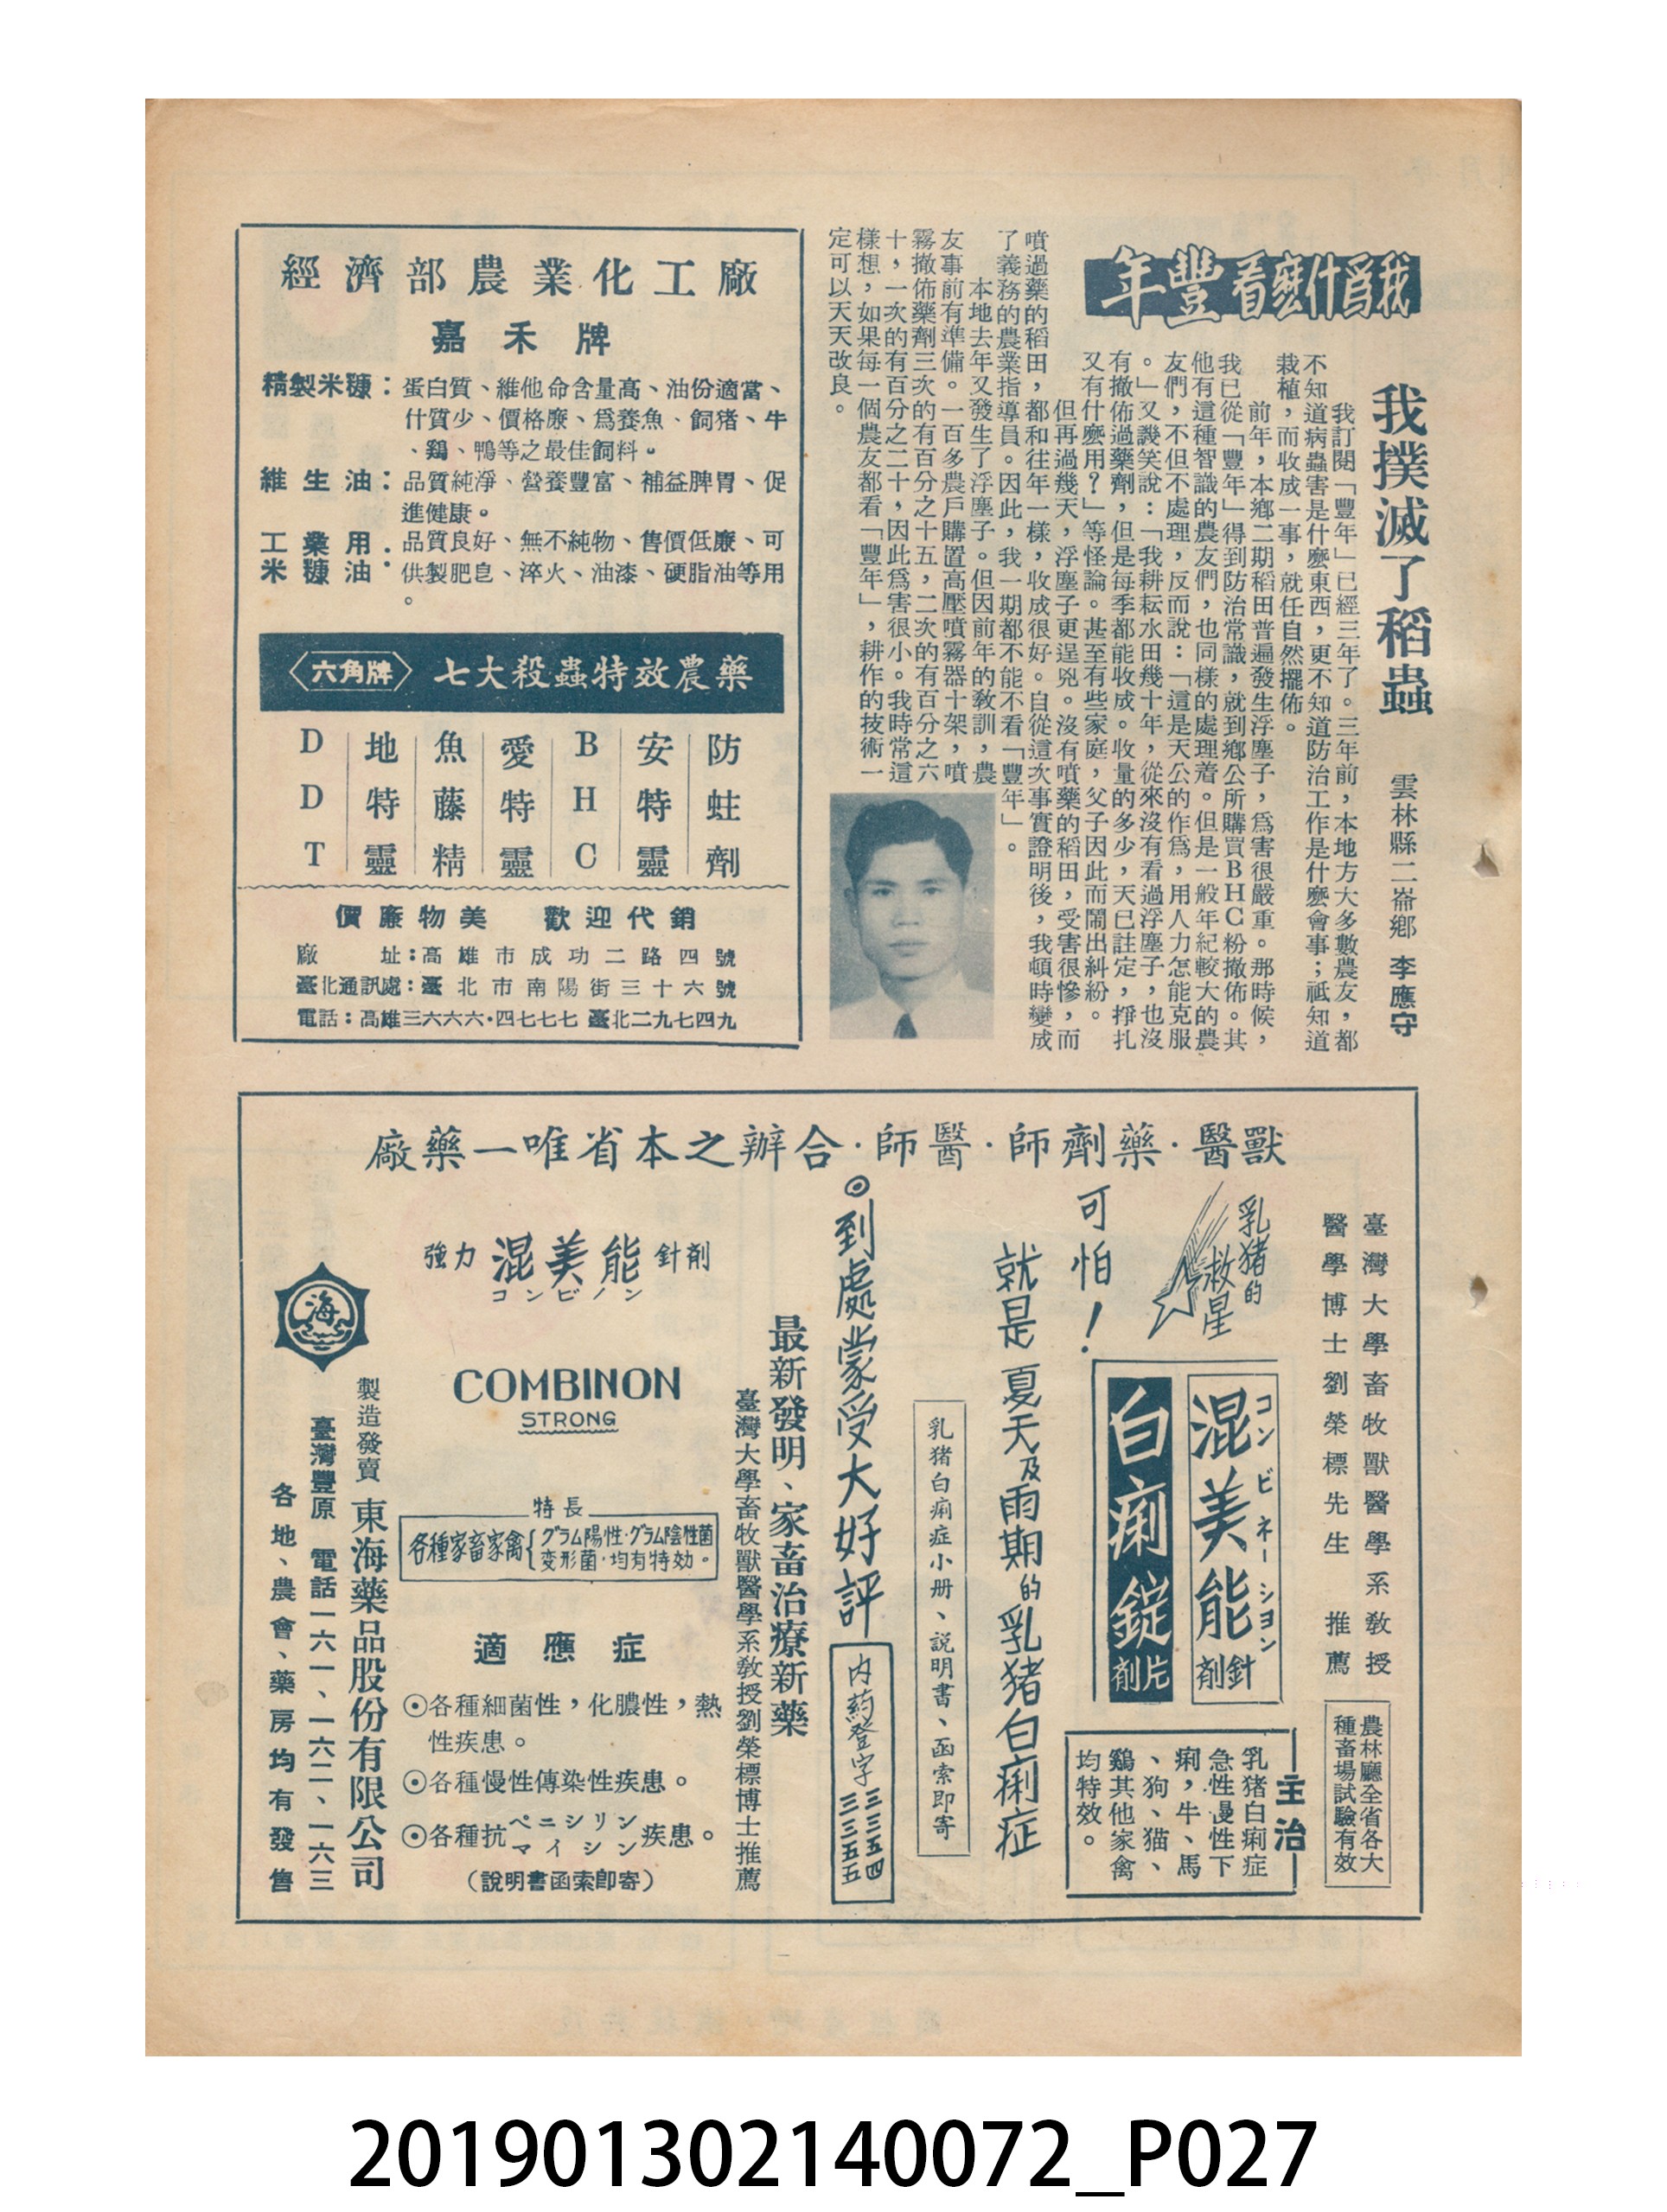 我爲什麽看豐年
我撲滅了稻蟲
雲林縣二崙鄉 李應守
我訂閱「豐年」已經三年了。三年前，本地方大多數農友，都
不知道病蟲害是什麽東西，更不知道防治工作是什麽會事；祗知道
栽植，而收成一事，就任自然擺佈。
前年，本鄉二期稻田普遍發生浮塵子，爲害很嚴重。那時候，
我已從「豐年」得到防治常識，就到鄉公所購買BHC粉撒佈。其
他有這種智識的農友們，也同樣的處理着。但是一般年紀較大的農
友們，不但不處理，反而說：「這是天公的作爲，用人力怎能克服
。」又譏笑說：「我耕耘水田幾十年，從來沒有看過浮塵子，也沒
有撒佈過藥劑，但是每季都能收成。收量的多少，天已註定，掙扎
又有什麽用？」等怪論。甚至有些家庭，父子因此而鬧出糾紛。
但再過幾天，浮塵子更逞兇。沒有噴藥的稻田，受害很慘，而
噴過藥的稻田，都和往年一樣，收成很好。自從這次事實證明後，我頓時變成
了義務的農業指導員。因此，我一期都不能不看「豐年」。
本地去年又發生了浮塵子。但因前年的教訓，農
友事前有準備。一百多農戶購置高壓噴霧器十架，噴
霧撒佈藥劑三次的有百分之十五，二次的有百分之六
十，一次的有百分之二十，因此爲害很小。我時常這
樣想，如果每一個農友都看「豐年」，耕作的技術一
定可以天天改良。
經濟部農業化工廠
嘉禾牌
精製米糠：蛋白質、維他命含量高、油份適當、
什質少、價格廉、爲養魚、飼猪、牛
、鷄、鴨等之最佳飼料。
維生油：品質純淨、營養豐富、補益脾胃、促
進健康。
工業用米糠油：品質良好、無不純物、售價低廉、可
供製肥皂、淬火、油漆、硬脂油等用
。
六角牌 七大殺蟲特效農藥
防蛀劑
安特靈
BHC
愛特靈
魚藤精
地特靈
DDT
價廉物美 歡迎代銷
廠址：高雄市成功二路四號
臺北通訊處：臺北市南陽街三十六號
電話：高雄三六六六・四七七七 臺北二九七四九
獸醫・藥劑師・醫師・合辦之本省唯一藥廠
臺灣大學畜牧獸醫學系教授
醫學博士劉榮標先生 推薦
農林廳全省各大
種畜場試驗有效
乳猪的
救星
コンビネーシヨン
混美能針劑
白痢錠片劑
主治
乳猪白痢症
急性慢性下
痢，牛、馬
、狗、猫、
鷄其他家禽
均特效。
可怕！
就是夏天及雨期的乳猪白痢症
乳猪白痢症小册、説明書、函索即寄
◎到處蒙受大好評
内药登字
三三五四
三三五五
最新發明、家畜治療新藥
臺灣大學畜牧獸醫學系教授劉榮標博士推薦
強力 混美能 針剤
コンビノン
COMBINON
STRONG
特長
各種家畜家禽{グラム陽性・グラム陰性菌
変形菌・均有特効。
適應症
⊙各種細菌性，化膿性，熱
性疾患。
⊙各種慢性傳染性疾患。
⊙各種抗ペニシリンマイシン疾患。
（說明書函索卽寄）
海
製造發賣 東海藥品股份有限公司
臺灣豐原 電話一六一、一六二、一六三
各地、農會、藥房均有發售
201901302140072_P027